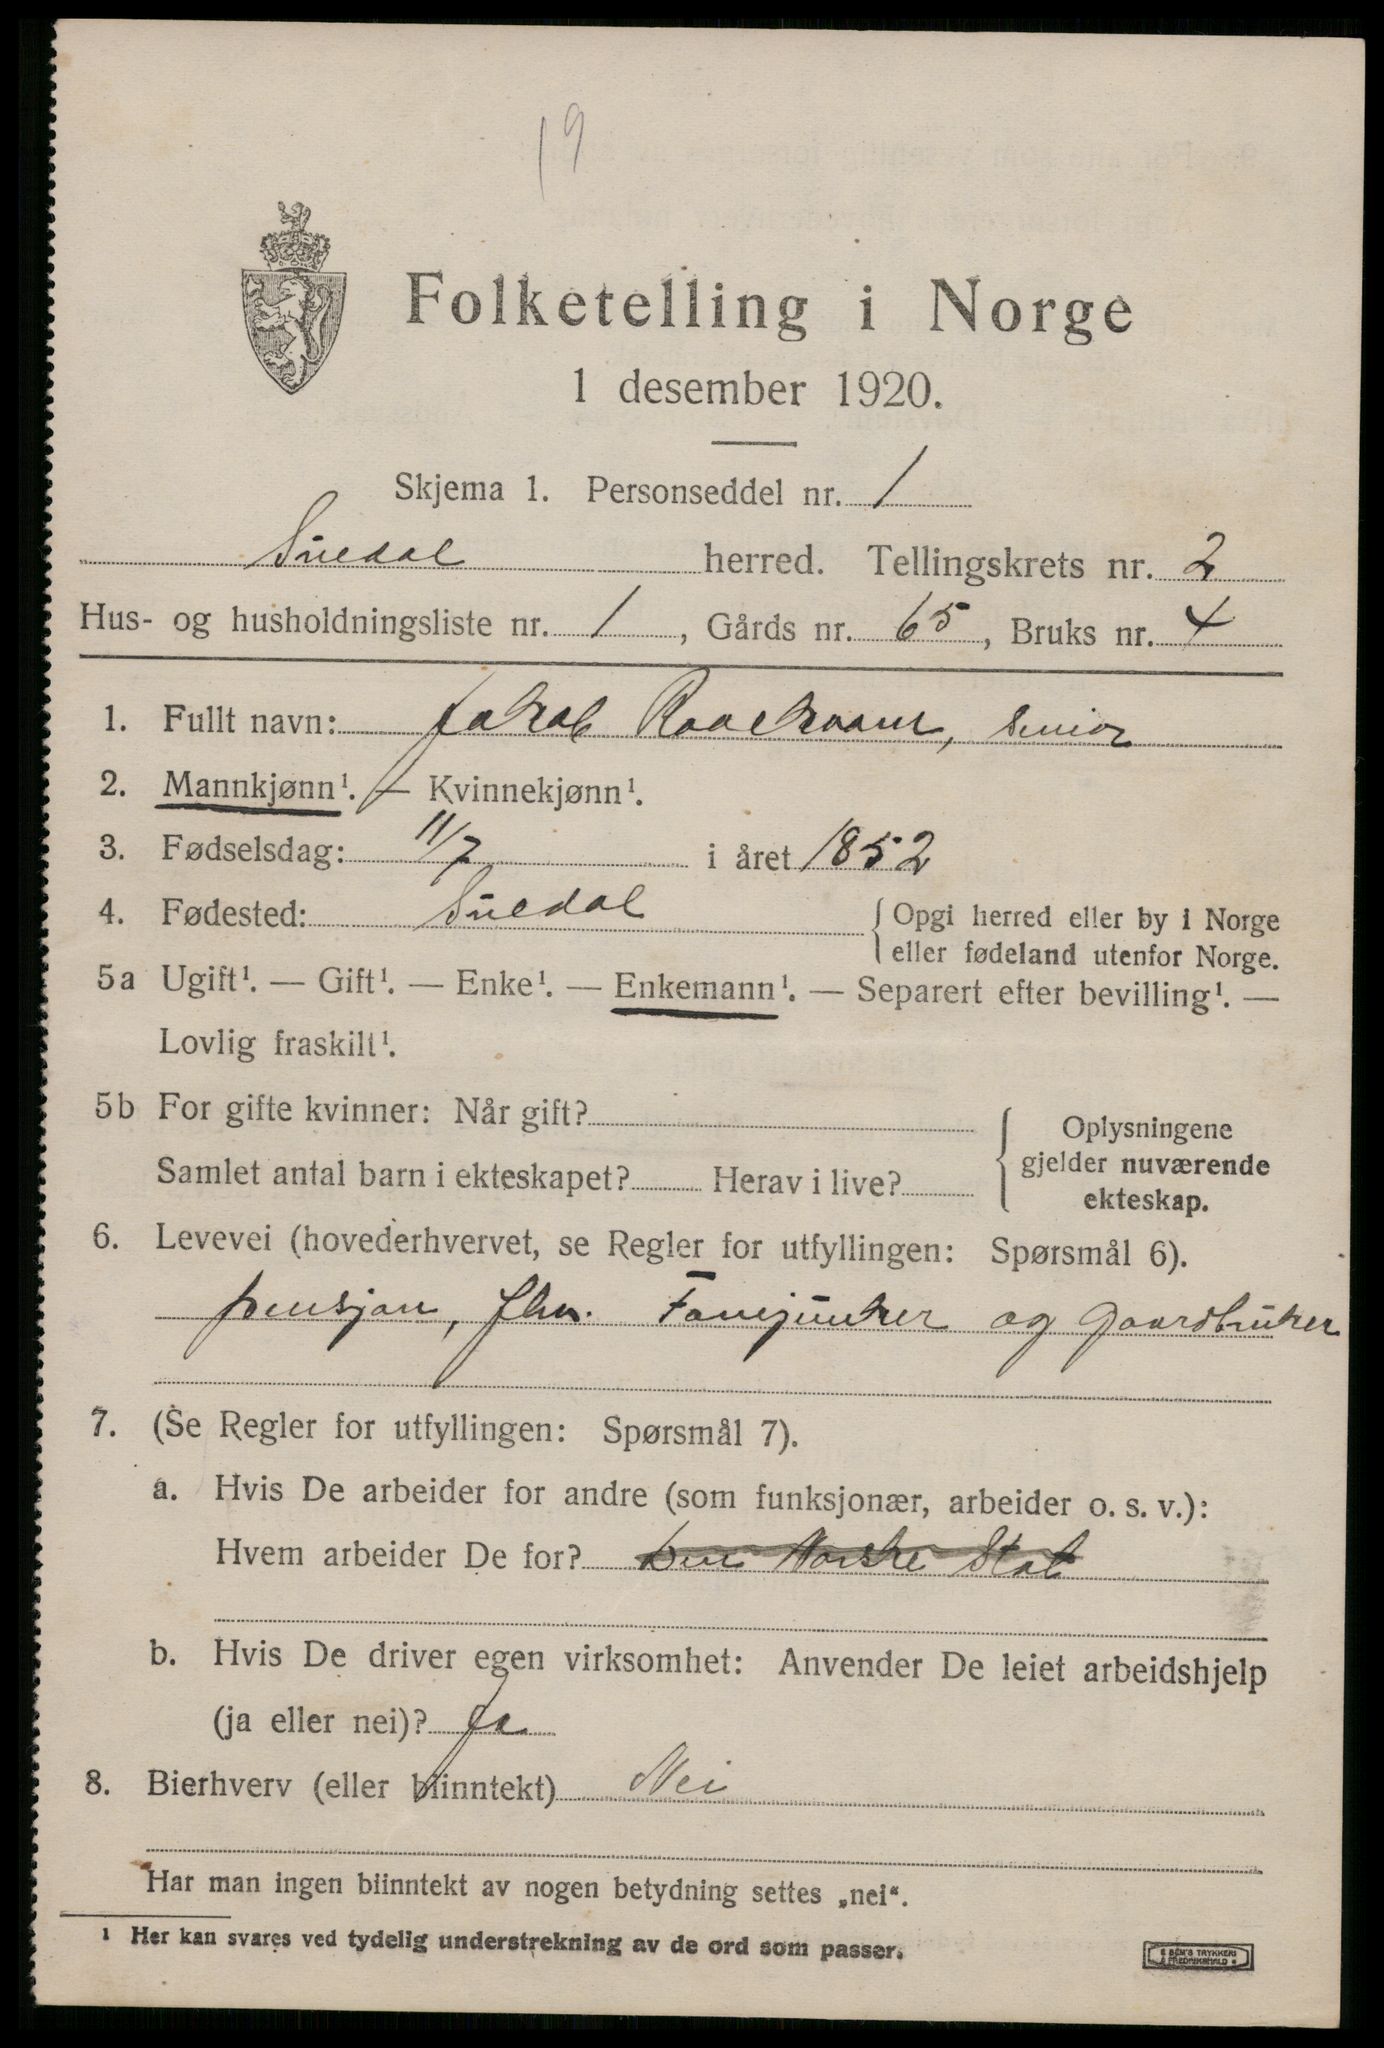 19
Folketelling i Norge
1 desember 1920.
Skjema 1. Personseddel nr. 1
Suldal herred. Tellingskrets nr. 2
Hus- og husholdningsliste nr. 1, Gårds nr. 65, Bruks nr. 4
1. Fullt navn: Jakob Raaekvam, senior
2. Mannkjønn¹. — Kvinnekjønn¹.
3. Fødselsdag: 11/7 i året 1852
4. Fødested: Suldal { Opgi herred eller by i Norge
eller fødeland utenfor Norge.
5a Ugift¹. — Gift¹. — Enke¹. — Enkemann¹. — Separert efter bevilling¹. —
Lovlig fraskilt¹.
5b For gifte kvinner: Når gift?
Samlet antal barn i ekteskapet? Herav i live?
{ Oplysningene
gjelder nuværende
ekteskap.
6. Levevei (hovederhvervet, se Regler for utfyllingen: Spørsmål 6).
pensjon, fhv. Fanejunker og gaardbruker
7. (Se Regler for utfyllingen: Spørsmål 7).
a. Hvis De arbeider for andre (som funksjonær, arbeider o. s. v.):
Hvem arbeider De for? Den Norske Stat
b. Hvis De driver egen virksomhet: Anvender De leiet arbeidshjelp
(ja eller nei)? Ja
8. Bierhverv (eller biinntekt) Nei
Har man ingen biinntekt av nogen betydning settes „nei“.
¹ Her kan svares ved tydelig understrekning av de ord som passer.